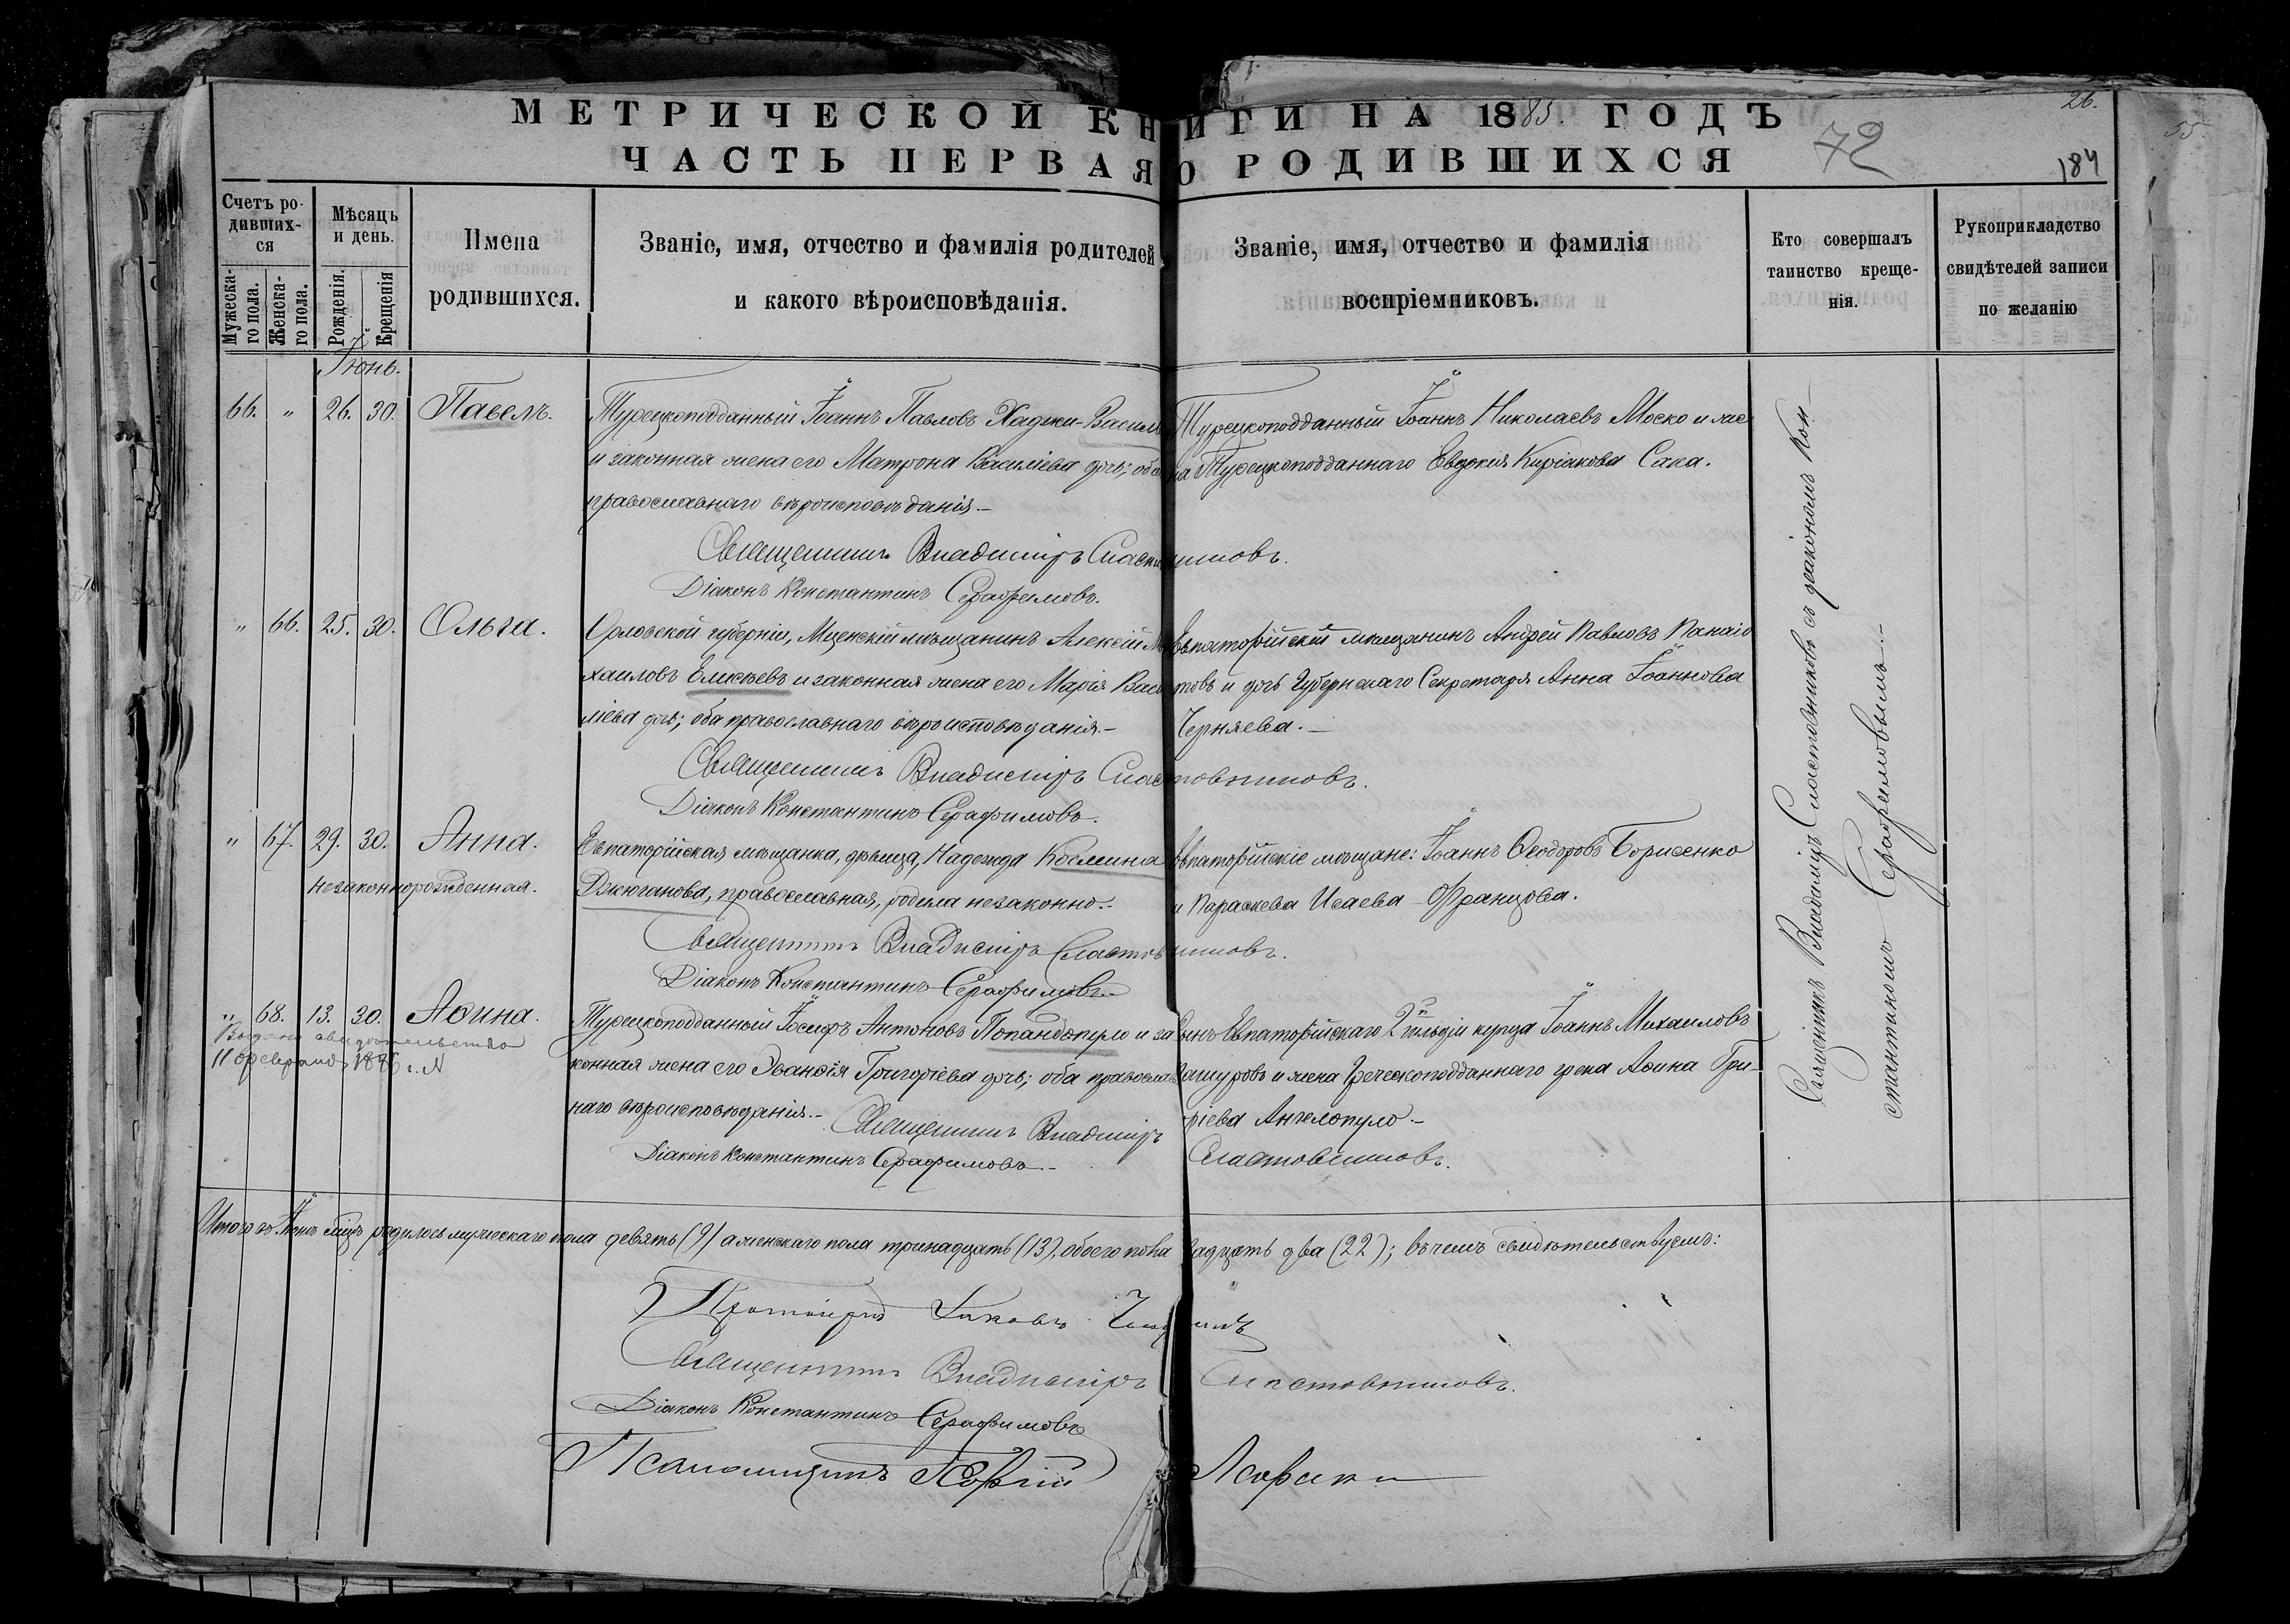 МЕТРИЧЕСКОЙ КНИГИ НА 1885. ГОДЪ
ЧАСТЬ ПЕРВАЯ О РОДИВШИХСЯ
26.
72
184
55.
Счетъ ро-
дивших-
ся
Мужеска-
го пола.
Женска-
го пола.
Мѣсяцъ
и день.
Рожденія.
Крещенія
Имена
родившихся.
Званіе, имя, отчество и фамилія родителей
и какого вѣроисповѣданія.
Званіе, имя, отчество и фамилія
воспріемниковъ.
Кто совершалъ
таинство креще-
нія.
Рукоприкладство
свидѣтелей записи
по желанію
Іюнь.
66. " 26. 30. Павелъ.
Турецкоподданный Іоаннъ Павловъ Хаджи-Васил
и законная жена его Матрона Василіева дочь; оба
православнаго вѣроисповѣданія.-
Турецкоподданный Іоаннъ Николаевъ Моско и же
на Турецкоподданнаго Евдокія Киріакова Сака.
Священникъ Владиміръ Сластовниковъ.
Діаконъ Константинъ Серафимовъ.
" 66. 25. 30. Ольга.
Орловской губерніи, Мценскій мѣщанинъ Алексій Ми
хаиловъ Елисѣевъ и законная жена его Марія Васи
ліева дочь; оба православнаго вѣроисповѣданія.-
Евпаторійскій мѣщанинъ Андрей Павловъ Панаіо
товъ и дочь Губернскаго Секретаря Анна Іоаннова
Черняева.-
Священникъ Владиміръ Сластовниковъ.
Діаконъ Константинъ Серафимовъ.
" 67. 29. 30. Анна.
незаконнорожденная.
Евпаторійская мѣщанка, дѣвица, Надежда Космина
Джюганова, православная, родила незаконно.-
Евпаторійскіе мѣщане: Іоаннъ Ѳеодоровъ Борисенко
и Параскева Исаева Францова.
Священникъ Владиміръ Сластовниковъ.
Діаконъ Константинъ Серафимовъ.-
" 68. 13. 30. Аѳина.
Выдано свидѣтельство
11 февраля 1886 г. N
Турецкоподданный Іосифъ Антоновъ Попандопуло и за
конная жена его Эванѳія Григоріева дочь; оба православ
наго вѣроисповѣданія.-
Сынъ Евпаторійскаго 2й гильдіи купца Іоаннъ Михаиловъ
и жена Греческоподданнаго грека Аѳина Гри-
горіева Ангелопуло.-
Священникъ Владиміръ Сластовниковъ.
Діаконъ Константинъ Серафимовъ.-
Священникъ Владиміръ Сластовниковъ съ діакономъ Кон-
стантиномъ Серафимовымъ.-
Итого въ Іюнѣ м-цѣ родилось мужескаго пола девять (9) а женскаго пола тринадцать (13), обоего пола двадцать два (22); въ чемъ свидѣтельствуемъ:
Протоіерей Іаковъ
Священникъ Владиміръ Сластовниковъ.
Діаконъ Константинъ Серафимовъ
Псаломщикъ